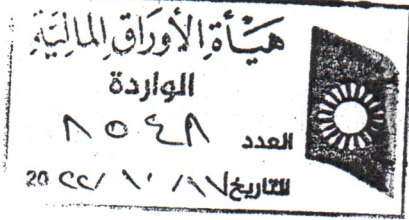 هيأة الأوراق المالية
الواردة
العدد ٨٥٤٨
التاريخ ١٧/ ١٠ /٢٢ 20